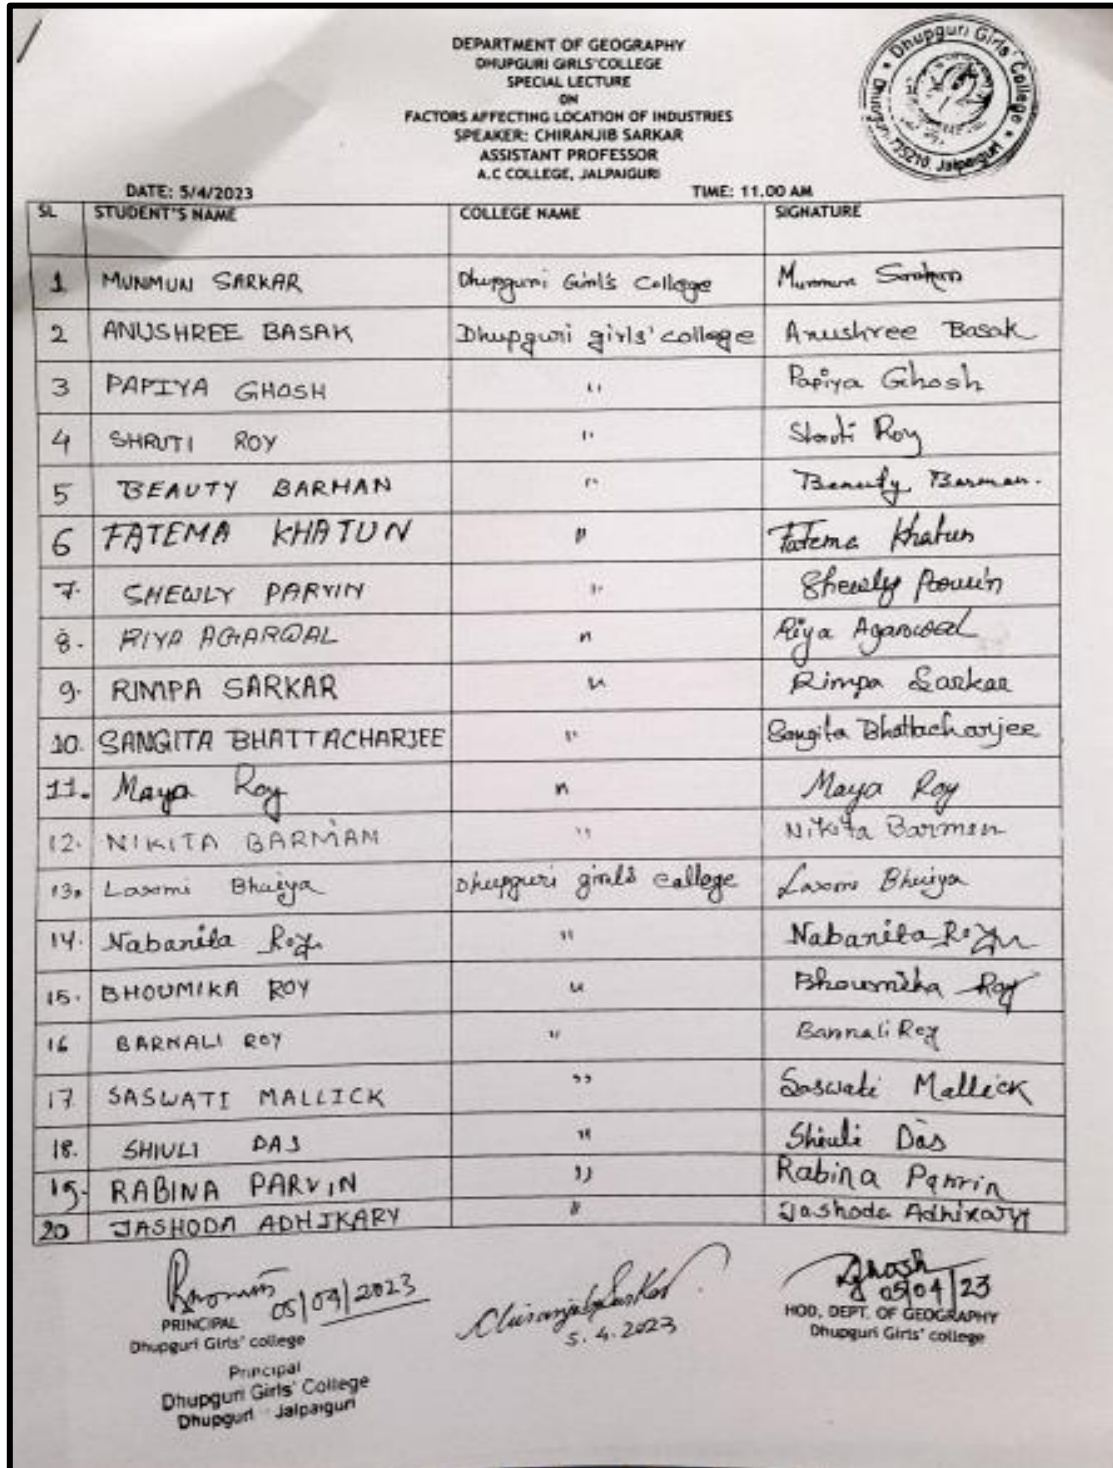 DEPARTMENT OF GEOGRAPHY
DHUPGURI GIRLS'COLLEGE
SPECIAL LECTURE
ON
FACTORS AFFECTING LOCATION OF INDUSTRIES
SPEAKER: CHIRANJIB SARKAR
ASSISTANT PROFESSOR
A.C COLLEGE, JALPAIGURI
Dhupguri Girls' College
Jalpaiguri
DATE: 5/4/2023 TIME: 11.00 AM
SL STUDENT'S NAME COLLEGE NAME SIGNATURE
1 MUNMUN SARKAR Dhupguri Girl's College Munmun Sarkar
2 ANUSHREE BASAK Dhupguri girls' college Anushree Basak
3 PAPIYA GHOSH " Papiya Ghosh
4 SHRUTI ROY " Shruti Roy
5 BEAUTY BARMAN " Beauty Barman.
6 FATEMA KHATUN " Fatema Khatun
7. SHEWLY PARVIN " Shewly Parvin
8. RIYA AGARWAL " Riya Agarwal
9. RIMPA SARKAR " Rimpa Sarkar
10. SANGITA BHATTACHARJEE " Sangita Bhattacharjee
11. Maya Roy " Maya Roy
12. NIKITA BARMAN " Nikita Barman
13. Laxmi Bhuiya Dhupguri girls college Laxmi Bhuiya
14. Nabanita Roy " Nabanita Roy
15. BHOUMIKA ROY " Bhoumika Roy
16 BARNALI ROY " Barnali Roy
17 SASWATI MALLICK " Saswati Mallick
18. SHIULI DAS " Shiuli Das
19. RABINA PARVIN " Rabina Parvin
20 JASHODA ADHIKARY " Jashoda Adhikary
05/04/2023
PRINCIPAL
Dhupguri Girls' college
Principal
Dhupguri Girls' College
Dhupguri Jalpaiguri
Chiranjib Sarkar
5.4.2023
Ghosh
05/04/23
HOD, DEPT. OF GEOGRAPHY
Dhupguri Girls' college